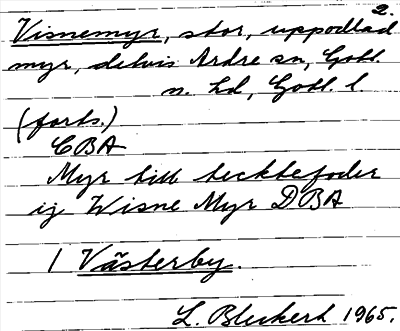 2.
Visnemyr, stor, uppodlad
myr, delvis Ardre sn, Gotl.
n. hd, Gotl. l
(forts.)
CBA
Myr till tecktefoder
ij Wisne Myr DBA
/ Västerby.
L. Bleckert 1965.